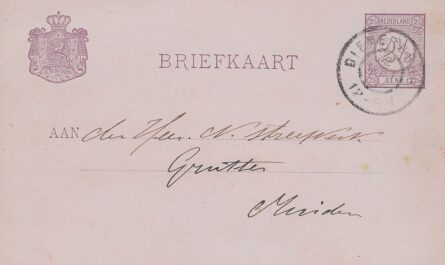 BRIEFKAART
2½ NEDERLAND 2½
CENT
AAN den Heer N. Streefkerk
Grutter
Muiden